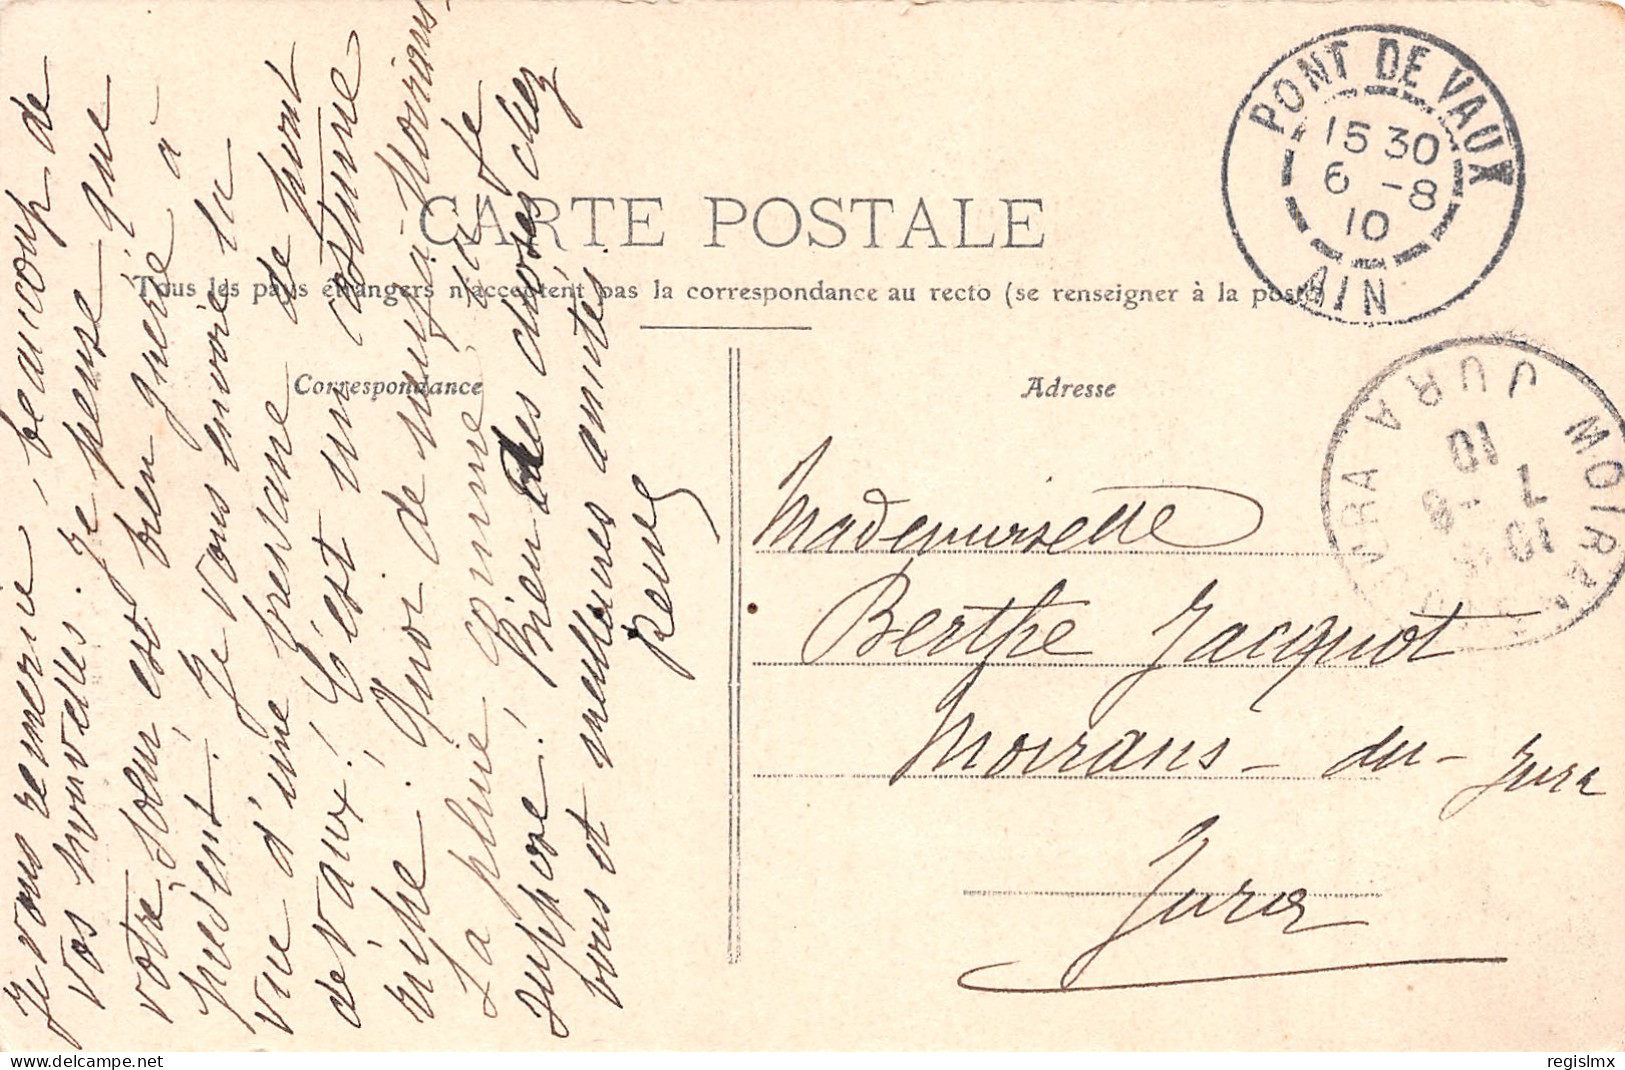 CARTE POSTALE
Tous les pays étrangers n'acceptent pas la correspondance au recto (se renseigner à la poste)
Correspondance
Adresse
PONT DE VAUX
15 30
6 -8
10
AIN
JURA
10
7 -8
10
Je vous remercie beaucoup de
vos nouvelles. Je pense que
votre soeur est bien guérie à
présent. Je vous envoie la
vue d'une bressane de pont
de vaux! C'est un costume
riche. Quoi de neuf à Moirans
La pluie comme
suppose! Bien des choses chez
vous et meilleures amitiés
Mademoiselle
Berthe Jacquot
Moirans - du - Jura
Jura
regislmx